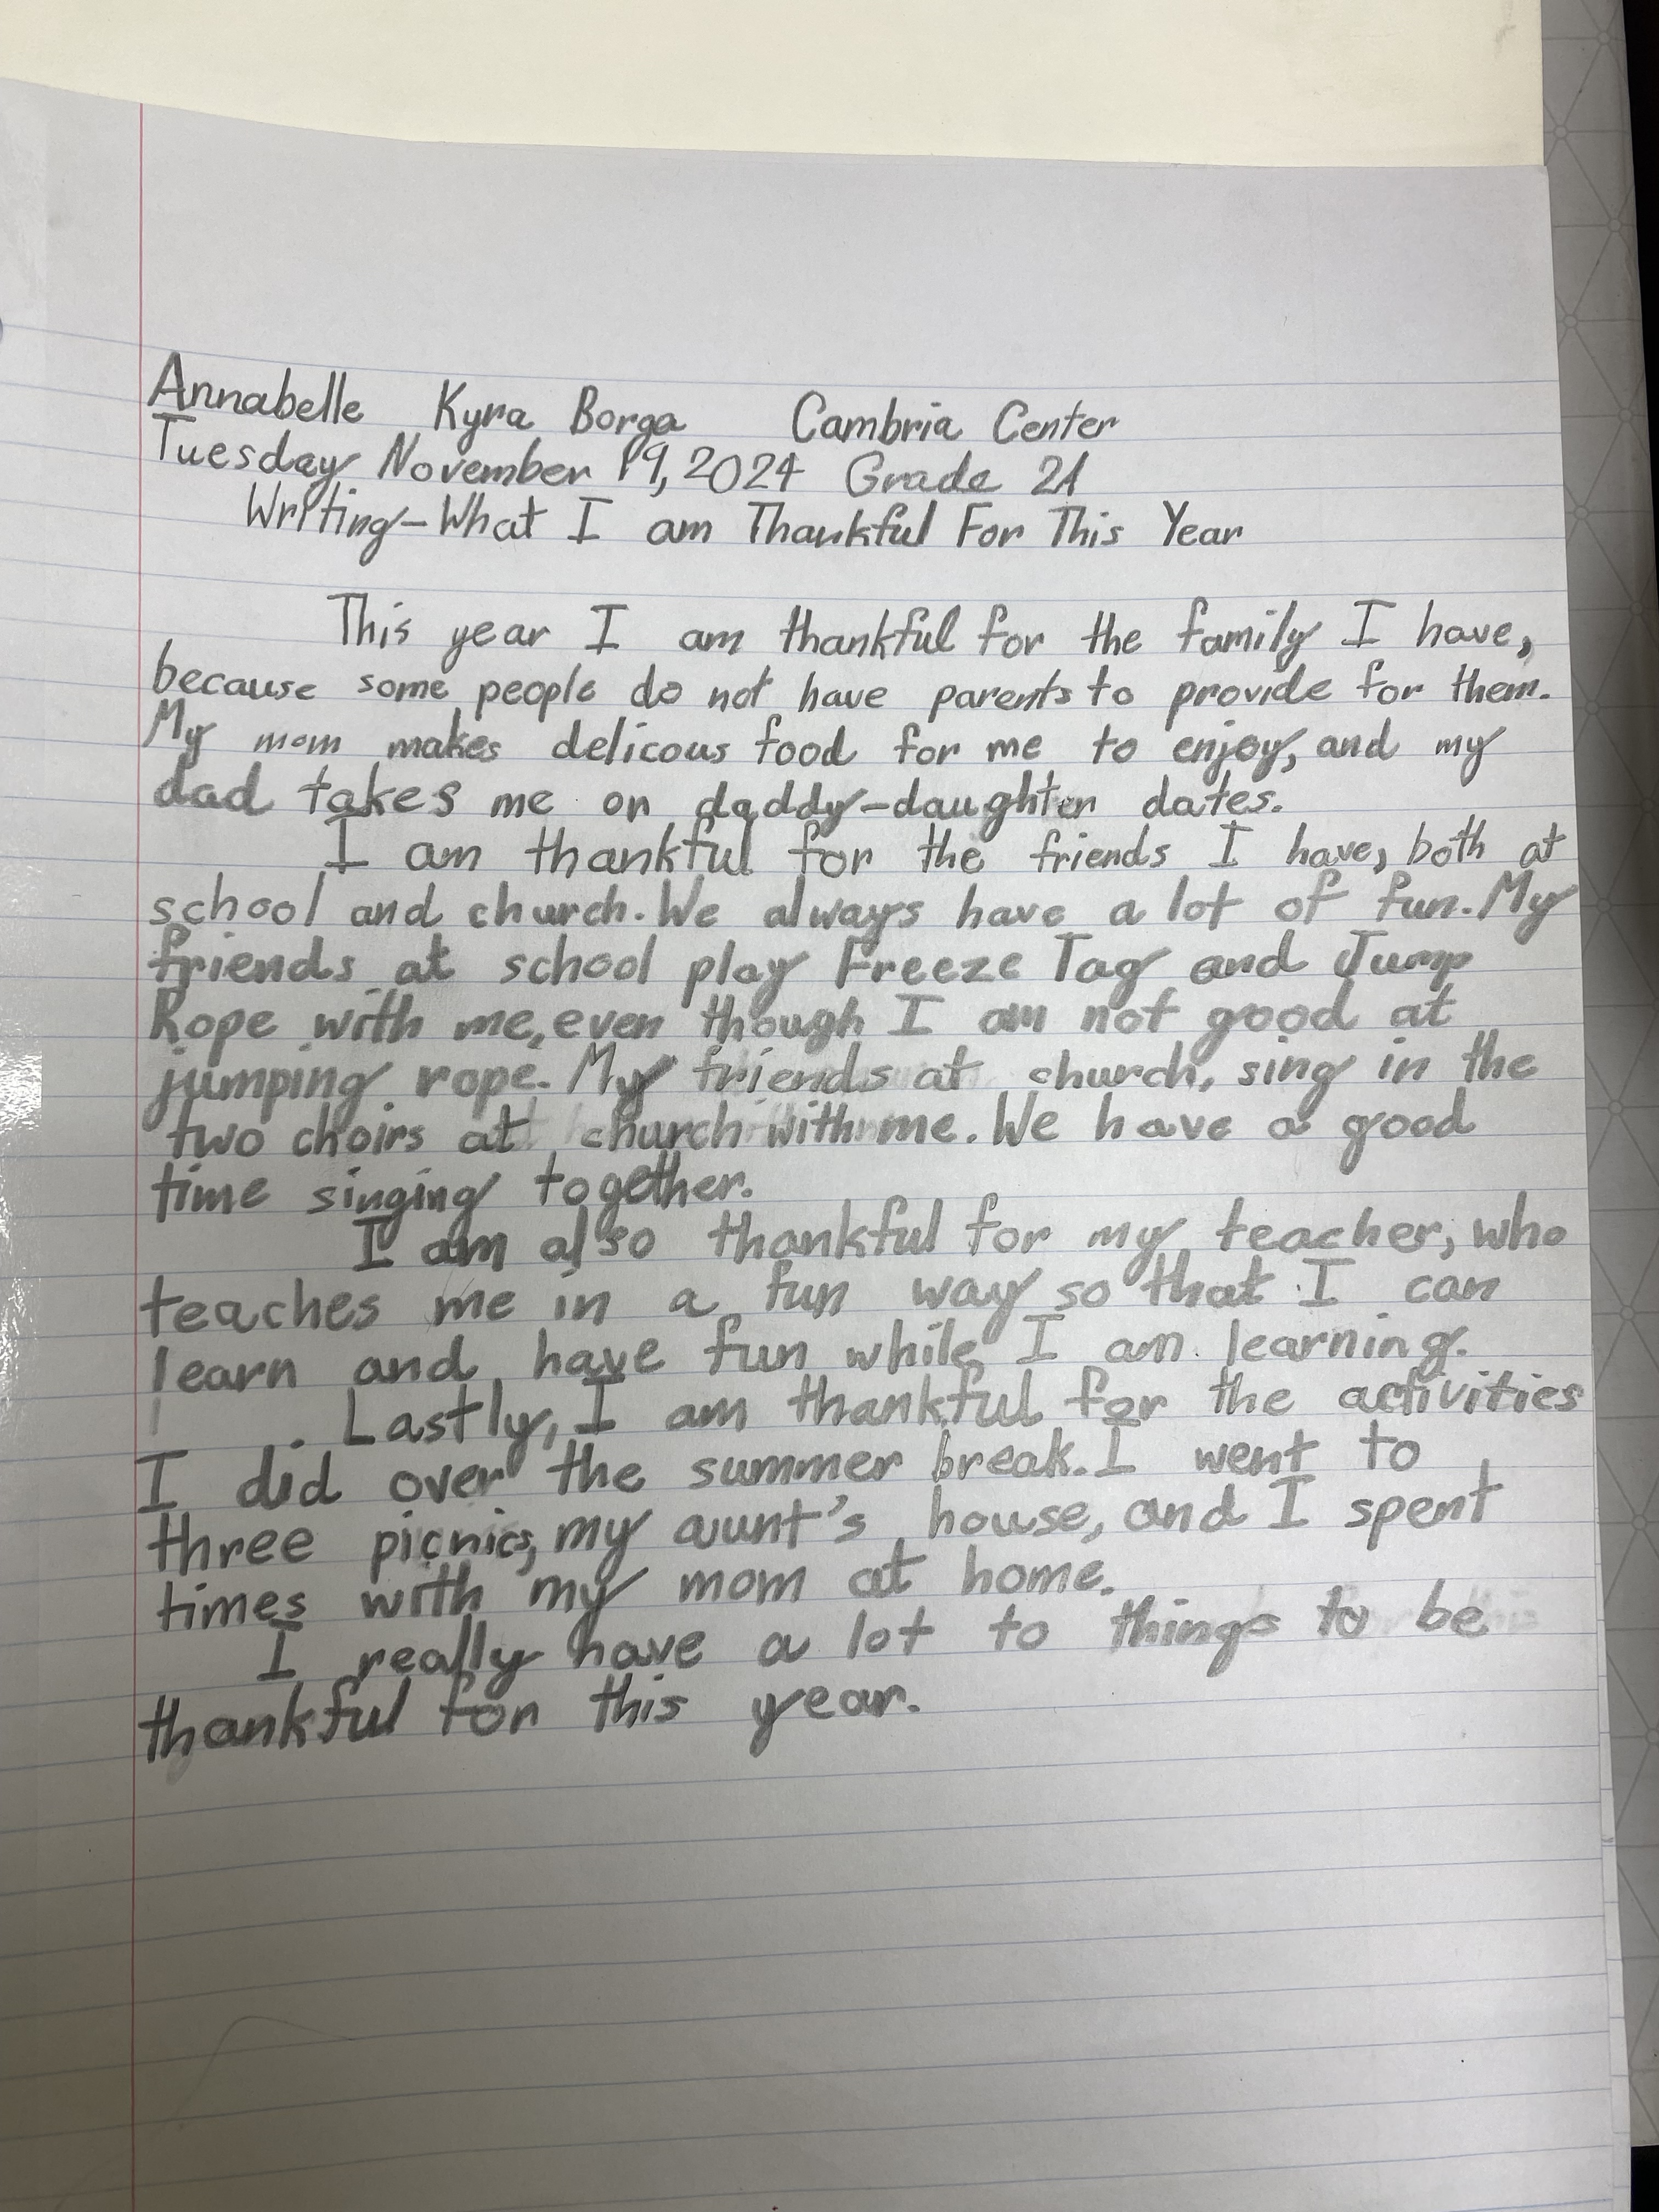 Annabelle Kyra Borga Cambria Center
Tuesday November 19, 2024 Grade 2A
Writing-What I am Thankful For This Year
This year I am thankful for the family I have,
because some people do not have parents to provide for them.
My mom makes delicous food for me to enjoy, and my
dad takes me on daddy-daughter dates.
I am thankful for the friends I have, both at
school and church. We always have a lot of fun. My
friends at school play Freeze Tag and Jump
Rope with me, even though I am not good at
jumping rope. My friends at church, sing in the
two choirs at church with me. We have a good
time singing together.
I am also thankful for my teacher, who
teaches me in a fun way so that I can
learn and have fun while I am learning.
Lastly, I am thankful for the activities
I did over the summer break. I went to
three picnics, my aunt's house, and I spent
times with my mom at home.
I really have a lot to things to be
thankful for this year.